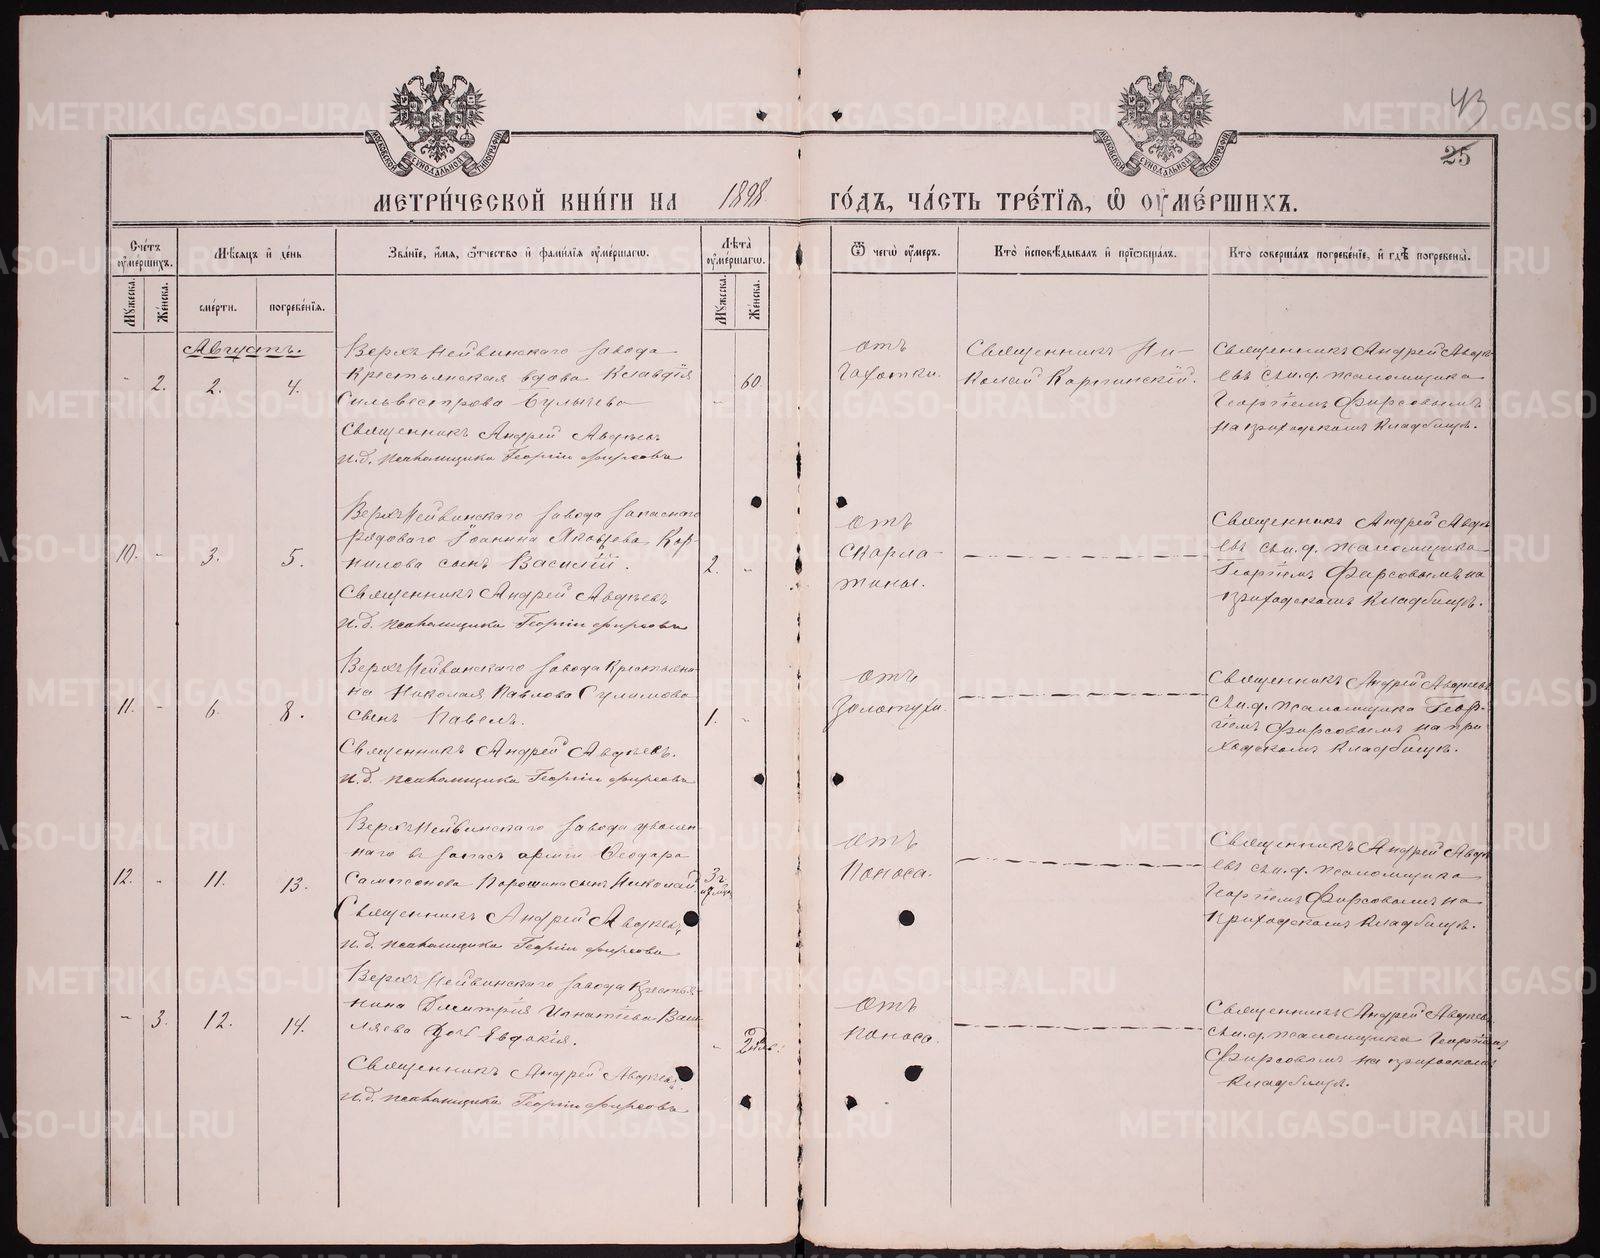 43
25
МОСКОВСКОЙ СѴНОДАЛЬНОЙ ТИПОГРАФІИ
МОСКОВСКОЙ СѴНОДАЛЬНОЙ ТИПОГРАФІИ
МЕТРИ́ЧЕСКОЙ КНИ́ГИ НА 1898 ГО́ДЪ, ЧА́СТЬ ТРЕ́ТІѦ, Ѡ ОУМЕ́РШИХЪ.
Сче́тъ оуме́ршихъ.
Мѣсѧцъ и҆ де́нь
Зва́ніе, и҆́мѧ, ѻ҆́тчество и҆ фами́лїѧ оуме́ршагѡ.
Лѣта̀ оуме́ршагѡ.
Ѿ чегѡ̀ оу́меръ.
Кто̀ и҆сповѣ́дывалъ и҆ прїѡбща́лъ.
Кто̀ соверша́лъ погребе́нїе, и҆ гдѣ̀ погребены̀.
Мꙋжеска.
Же́нска.
сме́рти.
погребе́нїѧ.
Мꙋжеска.
Же́нска.
Августъ.
- 2. 2. 4.
Верхъ Нейвинскаго завода
крестьянская вдова Клавдія
Сильвестрова Булычева
Священникъ Андрей Авдѣевъ
и.д. псаломщика Георгій Фирсовъ
- 60
отъ
чахотки.
Священникъ Ни-
колай Каргинскій.
Священникъ Андрей Авдѣ-
евъ съ и.д. псаломщика
Георгіемъ Фирсовымъ
на приходскомъ кладбищѣ.
10. - 3. 5.
Верхъ Нейвинскаго завода запаснаго
рядоваго Іоанна Яковлева Кор-
нилова сынъ Василій.
Священникъ Андрей Авдѣевъ
и.д. псаломщика Георгій Фирсовъ
2. -
отъ
скарла-
тины.
Священникъ Андрей Авдѣ-
евъ съ и.д. псаломщика
Георгіемъ Фирсовымъ на
приходскомъ кладбищѣ.
11. - 6. 8.
Верхъ Нейвинскаго завода крестьяни-
на Николая Павлова Сулимова
сынъ Павелъ.
Священникъ Андрей Авдѣевъ.
и.д. псаломщика Георгій Фирсовъ
1. -
отъ
золотухи.
Священникъ Андрей Авдѣевъ
съ и.д. псаломщика Геор-
гіемъ Фирсовымъ на при-
ходскомъ кладбищѣ.
12. - 11. 13.
Верхъ Нейвинскаго завода уволен-
наго въ запасъ арміи Ѳеодора
Самсонова Порошина сынъ Николай
Священникъ Андрей Авдѣевъ
и.д. псаломщика Георгій Фирсовъ
3 г.
отъ
поноса.
Священникъ Андрей Авдѣ-
евъ съ и.д. псаломщика
Георгіемъ Фирсовымъ на
приходскомъ кладбищѣ.
- 3. 12. 14.
Верхъ Нейвинскаго завода крестья-
нина Димитрія Игнатіева
дочь Евдокія.
Священникъ Андрей Авдѣевъ
и.д. псаломщика Георгій Фирсовъ
отъ
поноса.
Священникъ Андрей Авдѣевъ
съ и.д. псаломщика Георгіемъ
Фирсовымъ на приходскомъ
кладбищѣ.
METRIKI.GASO-URAL.RU